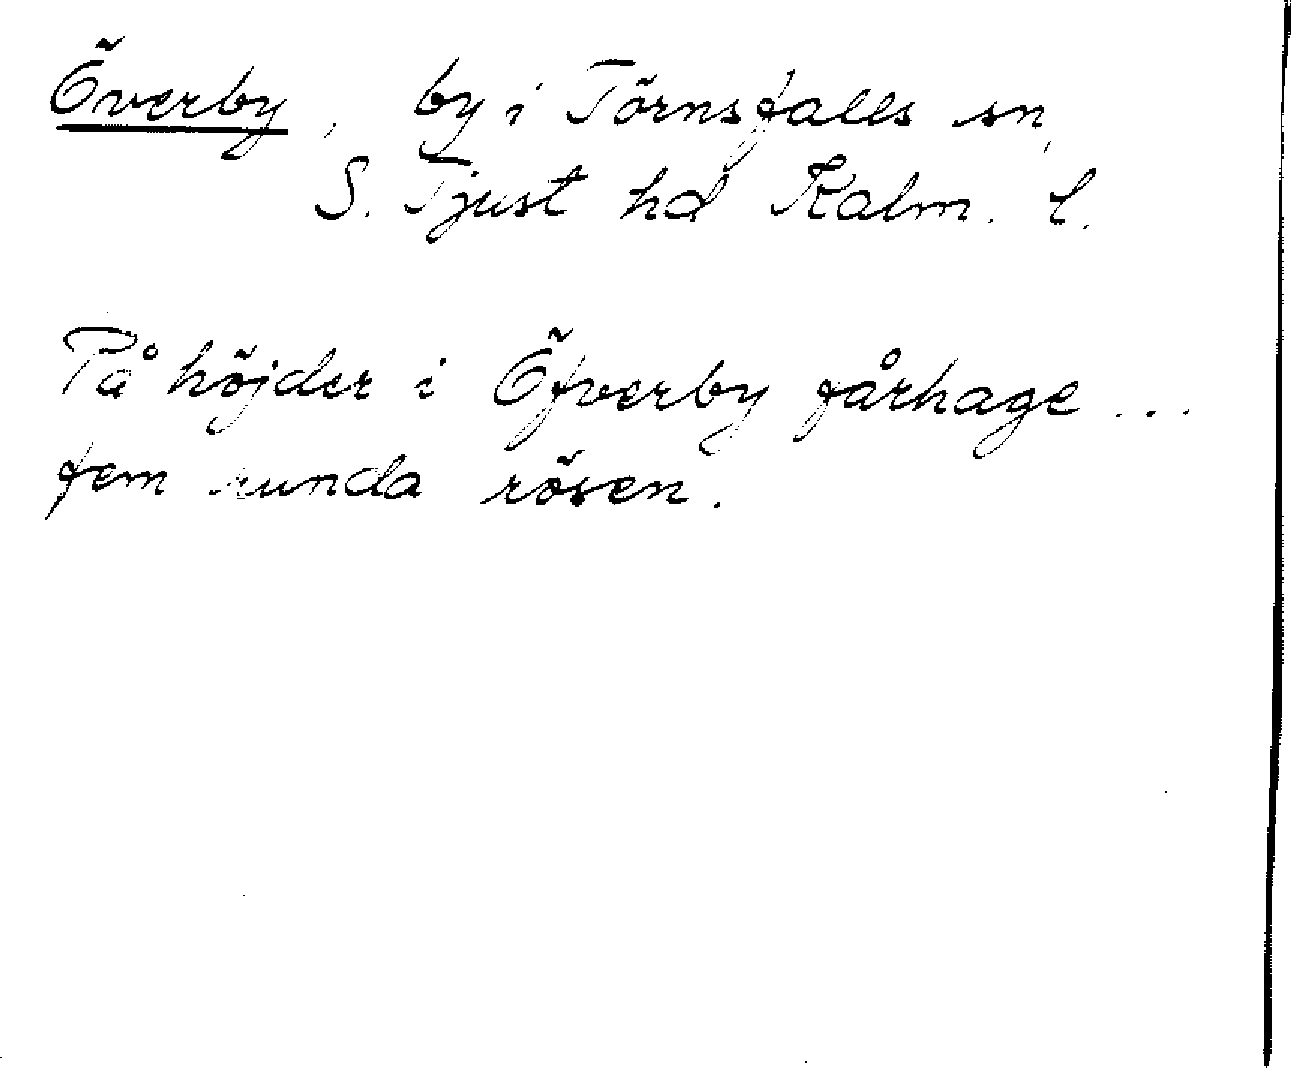 Överby, by i Törnsfalls sn,
S. Tjust hd Kalm. l.
På höjder i Öfverby fårhage ...
fem runda rösen.